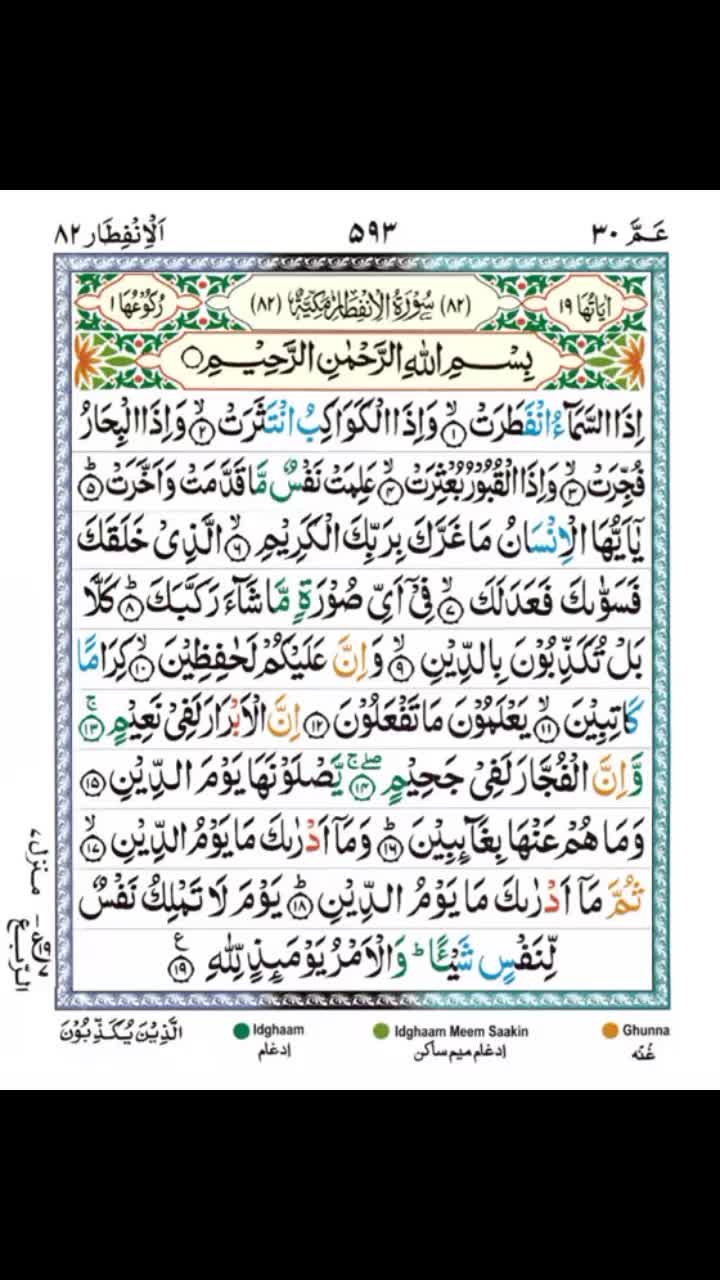 عَـمَّ ٣٠
٥٩٣
اَلْاِنْفِطَار ٨٢
اٰيَاتُهَا ١٩
(٨٢) سُوْرَةُ الْاِنْفِطَارِ مَكِّيَّةٌ (٨٢)
رُكُوْعُهَا ١
بِسْــمِ اللّٰهِ الرَّحْمٰنِ الرَّحِيْــمِ ○
اِذَا السَّمَآءُ انْفَطَرَتْ ۙ﴿۱﴾ وَاِذَا الْكَوَاكِبُ انْتَثَرَتْ ۙ﴿۲﴾ وَاِذَا الْبِحَارُ
فُجِّرَتْ ۙ﴿۳﴾ وَاِذَا الْقُبُوْرُ بُعْثِرَتْ ۙ﴿۴﴾ عَلِمَتْ نَفْسٌ مَّا قَدَّمَتْ وَاَخَّرَتْ ؕ﴿۵﴾
يٰۤاَيُّهَا الْاِنْسَانُ مَا غَرَّكَ بِرَبِّكَ الْكَرِيْمِ ۙ﴿۶﴾ الَّذِىْ خَلَقَكَ
فَسَوّٰىكَ فَعَدَلَكَ ۙ﴿۷﴾ فِىْۤ اَىِّ صُوْرَةٍ مَّا شَآءَ رَكَّبَكَ ؕ﴿۸﴾ كَلَّا
بَلْ تُكَذِّبُوْنَ بِالدِّيْنِ ۙ﴿۹﴾ وَاِنَّ عَلَيْكُمْ لَحٰفِظِيْنَ ۙ﴿۱۰﴾ كِرَامًا
كَاتِبِيْنَ ۙ﴿۱۱﴾ يَعْلَمُوْنَ مَا تَفْعَلُوْنَ ﴿۱۲﴾ اِنَّ الْاَبْرَارَ لَفِىْ نَعِيْمٍ ۚ﴿۱۳﴾
وَّاِنَّ الْفُجَّارَ لَفِىْ جَحِيْمٍ ۖۚ﴿۱۴﴾ يَّصْلَوْنَهَا يَوْمَ الدِّيْنِ ﴿۱۵﴾
وَمَا هُمْ عَنْهَا بِغَآئِبِيْنَ ؕ﴿۱۶﴾ وَمَاۤ اَدْرٰىكَ مَا يَوْمُ الدِّيْنِ ۙ﴿۱۷﴾
ثُمَّ مَاۤ اَدْرٰىكَ مَا يَوْمُ الدِّيْنِ ؕ﴿۱۸﴾ يَوْمَ لَا تَمْلِكُ نَفْسٌ
لِّنَفْسٍ شَيْـًٔا ؕ وَالْاَمْرُ يَوْمَئِذٍ لِّلّٰهِ ﴿۱۹﴾ ع
منزل ۷
الربع
Ghunna
غُنّه
Idghaam Meem Saakin
اِدغام میم ساکن
Idghaam
اِدغام
الَّذِيْنَ يُكَذِّبُوْنَ